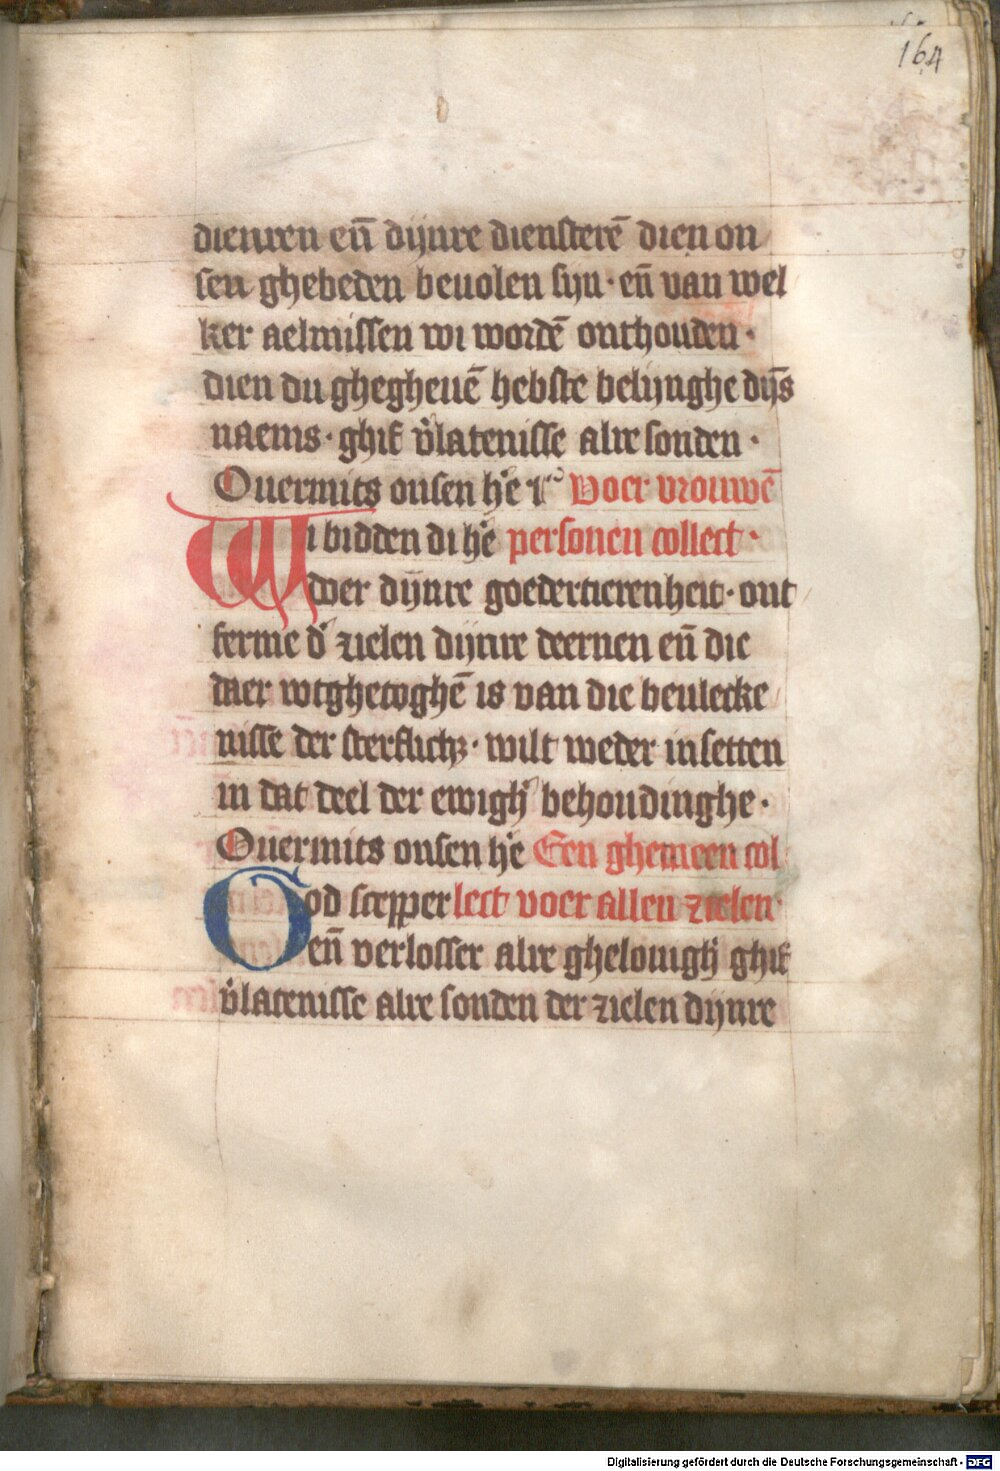 164
dienren en̄ dijnre diensterē dien on
sen ghebeden beuolen sijn· en̄ van wel
ker aelmissen wi wordē onthouden·
dien du ghegheuē hebste belijnghe dijs̄
naems· ghif v̓latenisse alre sonden·
Ouermits onsen hē Voer vrouwē
Wi bidden di hē personen collect·
doer dijnre goedertierenheit· ont
ferme d̓ zielen dijnre deernen en̄ die
daer wtghetoghē is van die beulecke
nisse der sterflichz· wilt weder in setten
in dat deel der ewigh̓ behoudinghe·
Ouermits onsen hē Een ghemeen col
God scepper lect voer allen zielen·
en̄ verlosser alre ghelouigh̓ ghif
v̓latenisse alre sonden der zielen dijnre
Digitalisierung gefördert durch die Deutsche Forschungsgemeinschaft - DFG